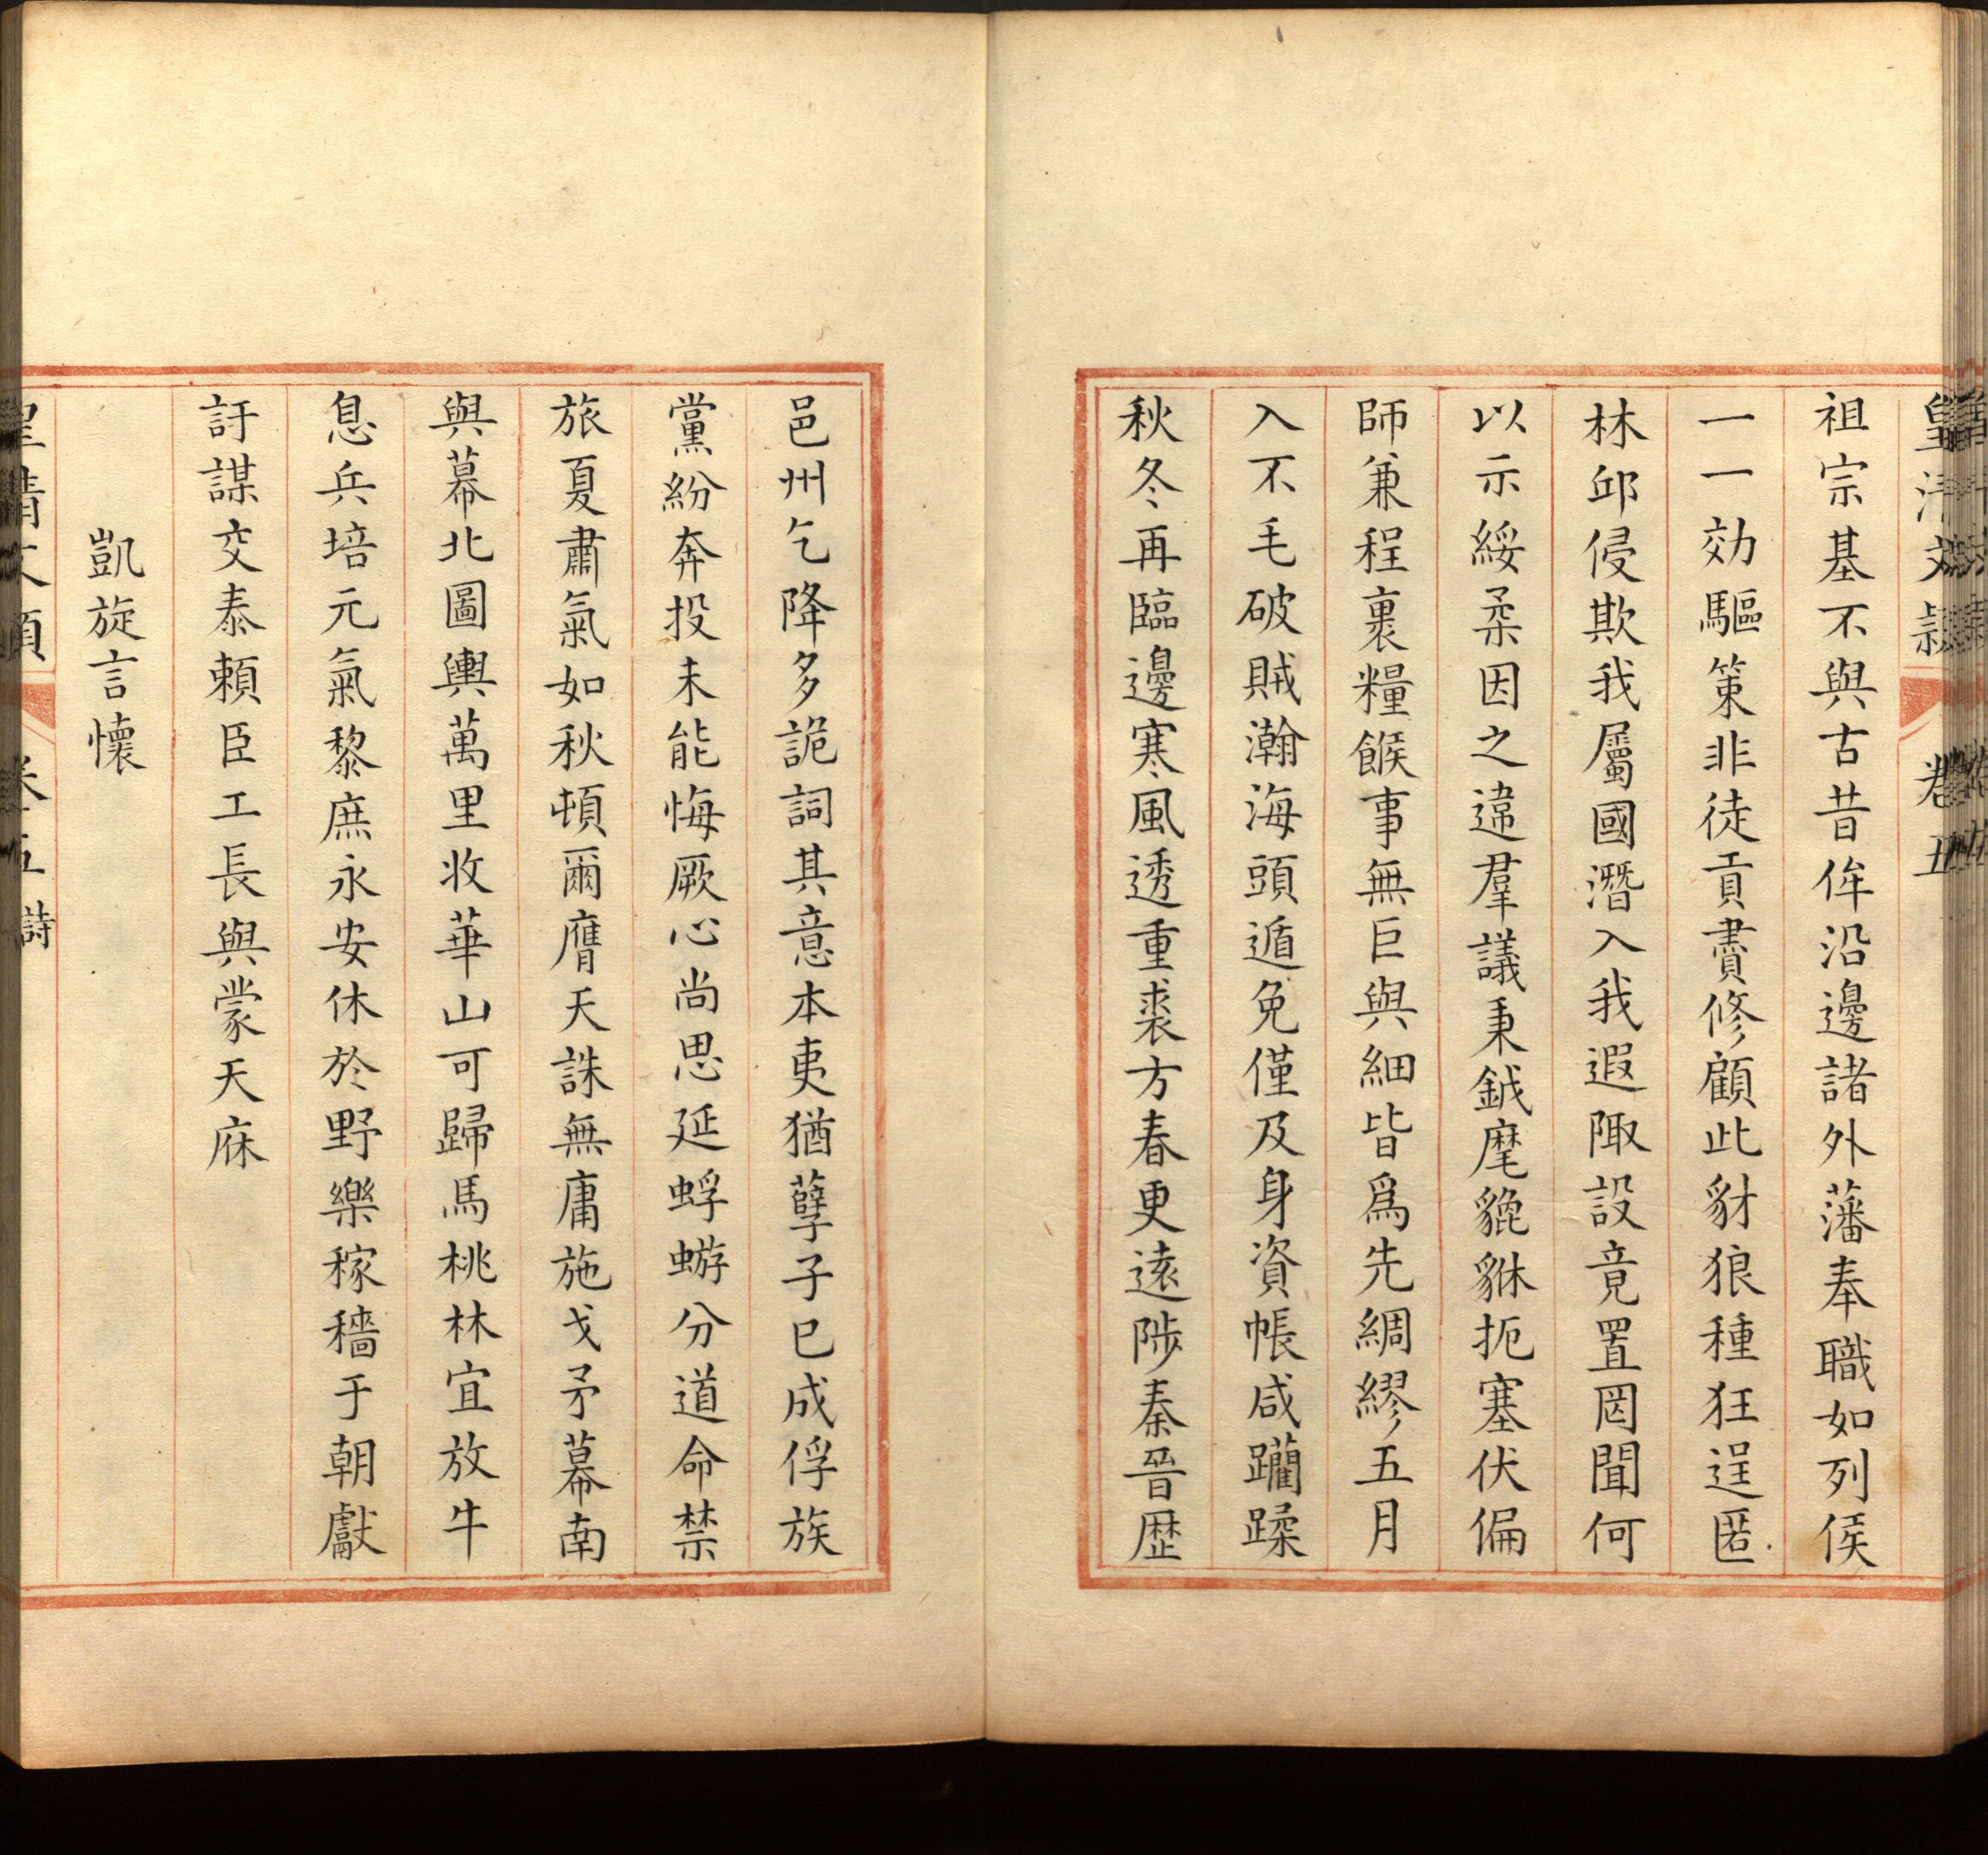 皇清文穎 卷五
祖宗基不與古昔侔沿邊諸外藩奉職如列侯
一一効驅策非徒貢賮修顧此豺狼種狂逞匿
林邱侵欺我屬國潛入我遐陬設竟置罔聞何
以示綏柔因之違羣議秉鉞麾貔貅扼塞伏偏
師兼程裹糧餱事無巨與細皆爲先綢繆五月
入不毛破賊瀚海頭遁免僅及身資帳咸躪蹂
秋冬再臨邊寒風透重裘方春更遠陟秦晉歷
邑州乞降多詭詞其意本吏猶孽子已成俘族
黨紛奔投未能悔厥心尚思延蜉蝣分道命禁
旅夏肅氣如秋頓爾膺天誅無庸施戈矛幕南
與幕北圖輿萬里收華山可歸馬桃林宜放牛
息兵培元氣黎庶永安休於野樂稼穡于朝獻
訏謀交泰賴臣工長與蒙天庥
凱旋言懷
皇清文穎 卷五 詩